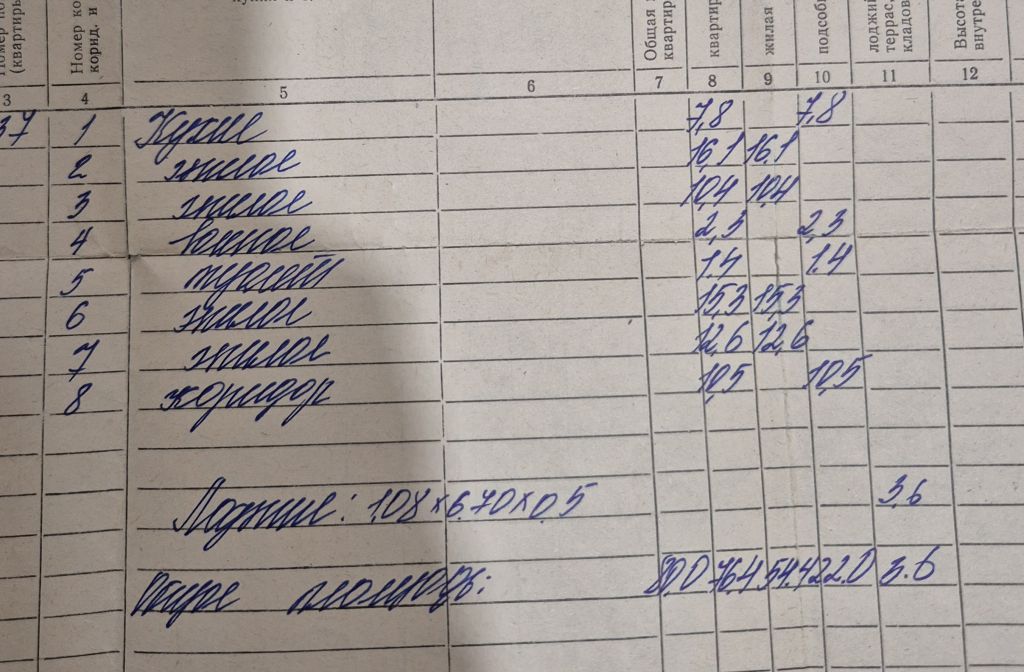 Номер по
(квартиры
Номер ко
корид. и
Общая
квартир
квартир
жилая
подсоб
лоджи
террас,
кладов
Высота
внутре
3 4 5 6 7 8 9 10 11 12
37 1 Кухня 7,8 7,8
2 жилая 16,1 16,1
3 жилая 10,4 10,4
4 ванная 2,3 2,3
5 туалет 1,4 1,4
6 жилая 15,3 15,3
7 жилая 12,6 12,6
8 коридор 10,5 10,5
Лоджия: 1.08 × 6.70 × 0,5 3,6
Общая площадь: 80,0 76.4 54.4 22.0 3.6